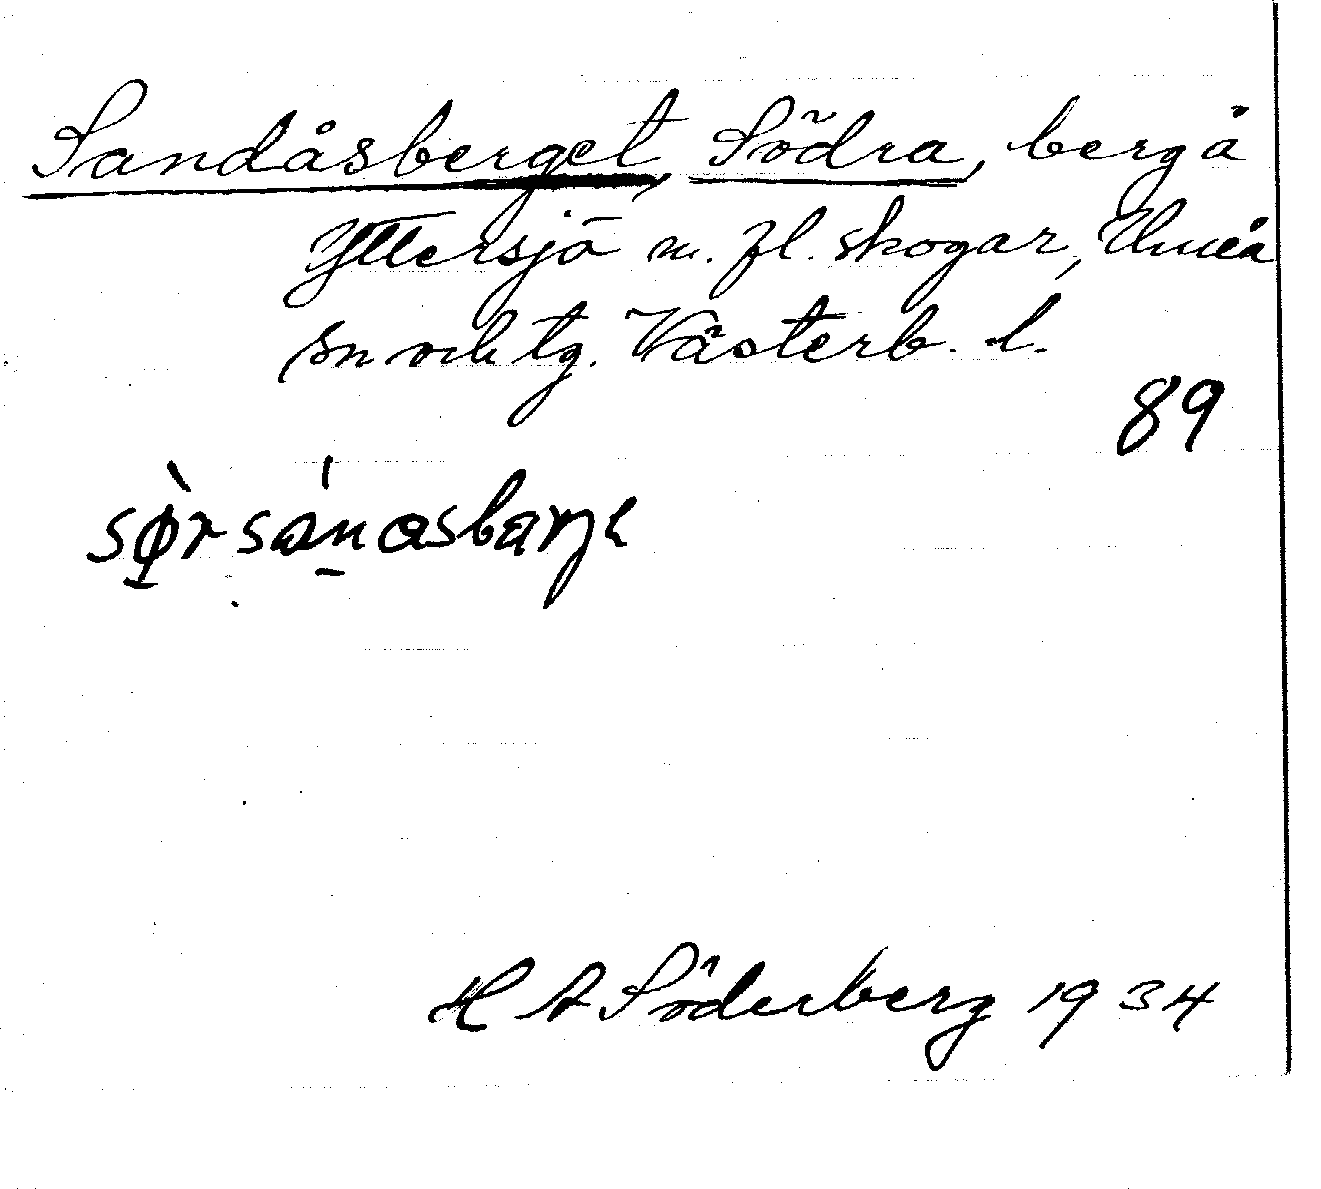 Sandåsberget, Södra, berg å
Yttersjö m. fl. skogar, Umeå
sn och tg. Västerb. l.
89
H A Söderberg 1934